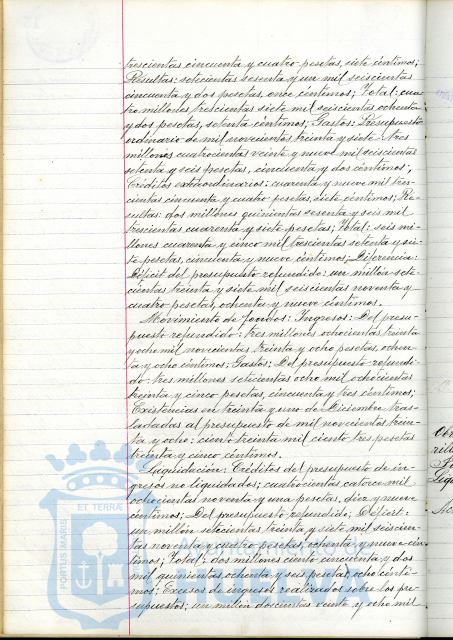 trescientas cincuenta y cuatro pesetas, siete céntimos;
Resultas: setecientas sesenta y un mil seiscientas
cincuenta y dos pesetas, once céntimos; Total: cua-
tro millones, trescientas siete mil seiscientas ochenta
y dos pesetas, setenta céntimos; Gastos: Presupuesto
ordinario de mil novecientos treinta y siete: tres
millones cuatrocientas veinte y nueve mil seiscientas
setenta y seis pesetas, cincuenta y dos céntimos;
Créditos extraordinarios: cuarenta y nueve mil tres-
cientas cincuenta y cuatro pesetas, siete céntimos; Re-
sultas: dos millones quinientas sesenta y seis mil
trescientas cuarenta y siete pesetas; Total: seis mi-
llones cuarenta y cinco mil trescientas setenta y sie-
te pesetas, cincuenta y nueve céntimos; Diferencia:
Déficit del presupuesto refundido: un millón sete-
cientas treinta y siete mil seiscientas noventa y
cuatro pesetas, ochenta y nueve céntimos.
Movimiento de fondos: Ingresos: Del presu-
puesto refundido: tres millones ochocientas treinta
y ocho mil novecientas, treinta y ocho pesetas, ochen-
ta y ocho céntimos; Gastos: Del presupuesto refundi-
do: tres millones setecientas ocho mil ochocientas
treinta y cinco pesetas, cincuenta y tres céntimos;
Existencias en treinta y uno de Diciembre tras-
ladadas al presupuesto de mil novecientos trein-
ta y ocho: ciento treinta mil ciento tres pesetas
treinta y cinco céntimos.
Liquidación: Créditos del presupuesto de in-
gresos no liquidados; cuatrocientas catorce mil
ochocientas noventa y una pesetas, diez y nueve
céntimos; Del presupuesto refundido; Déficit:
un millón setecientas treinta y siete mil seiscien-
tas noventa y cuatro pesetas, ochenta y nueve cén-
timos; Total: dos millones ciento cincuenta y dos
mil quinientas ochenta y seis pesetas, ocho cénti-
mos; Excesos de ingresos realizados sobre los pre-
supuestos; un millón doscientas veinte y ocho mil
ET TERRÆ
PORTUS MARIS